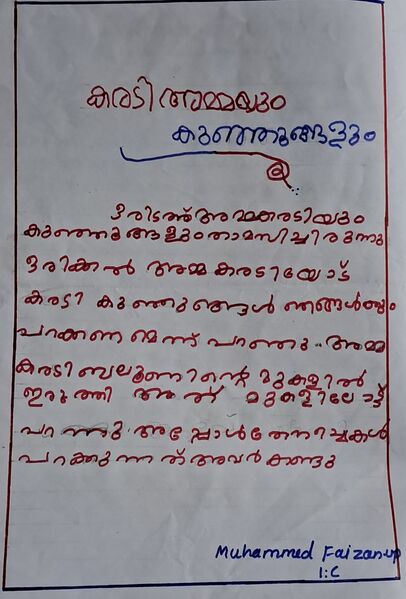 കരടി അമ്മയും
കുഞ്ഞുങ്ങളും
ഒരിടത്ത് അമ്മകരടിയും
കുഞ്ഞുങ്ങളും താമസിച്ചിരുന്നു
ഒരിക്കൽ അമ്മ കരടിയോട്
കരടി കുഞ്ഞുങ്ങൾ ഞങ്ങൾക്കും
പറക്കണമെന്ന് പറഞ്ഞു.. അമ്മ
കരടി ബലൂണിന്റെ മുകളിൽ
ഇരുത്തി അത് മുകളിലോട്ട്
പറന്നു അപ്പോൾ തേനീച്ചകൾ
പറക്കുന്നത് അവർ കണ്ടു
Muhammed Faizan.up
1:C